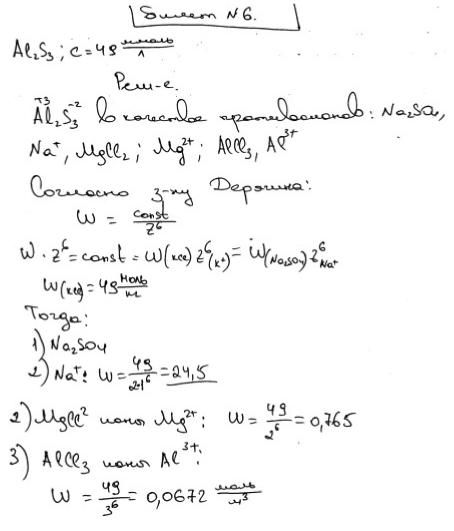 Билет №6.
Al₂S₃; c = 49 ммоль/л
Реш-е.
Al₂⁺³S₃⁻² в качестве противоионов: Na₂SO₄,
Na⁺, MgCl₂; Mg²⁺; AlCl₃, Al³⁺
Согласно з-ну Дерягина:
W = const/Z⁶
W · Z⁶ = const = W(KCl) Z⁶(K⁺) = W(Na₂SO₄) Z⁶Na⁺
W(KCl) = 49
Тогда:
1) Na₂SO₄
2) Na⁺: W = 49/2·1⁶ = 24,5
2) MgCl² ионы Mg²⁺: W = 49/2⁶ = 0,765
3) AlCl₃ ионы Al³⁺:
W = 49/3⁶ = 0,0672 моль/м³